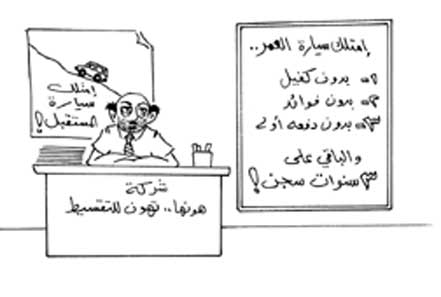 إمتلك سيارة العمر..
١- بدون كفيل
٢- بدون فوائد
٣- بدون دفعه أولى
والباقي على
٣ سنوات سجن؟
إمتلك
سيارة
المستقبل؟
شركة
هونها.. تهون للتقسيط